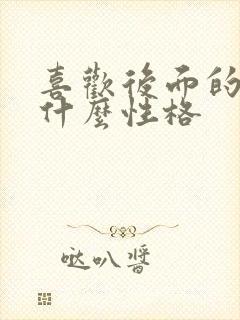 喜歡後而的
什麼性格
哒叭醬